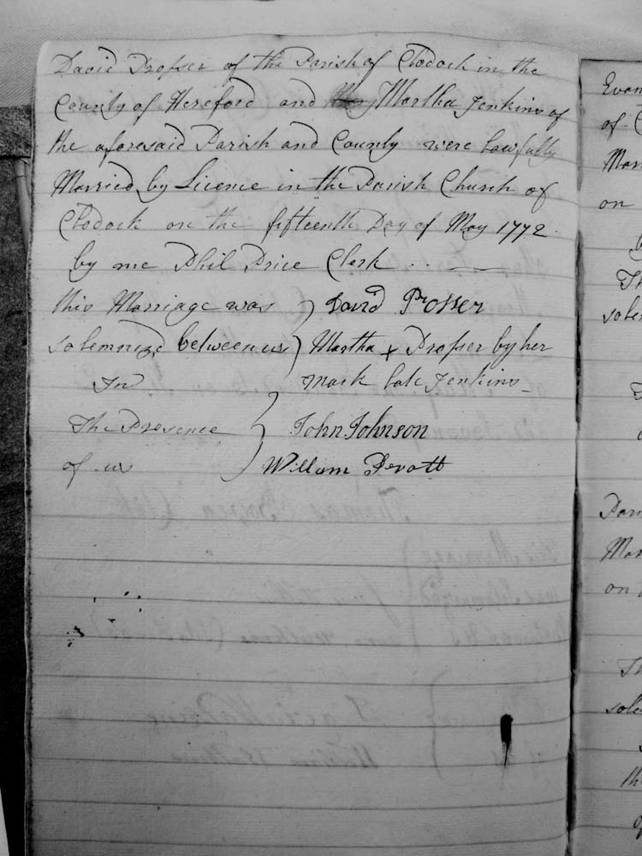 David Prosser of the Parish of Clodock in the
County of Hereford and Martha Jenkins of
the aforesaid Parish and County were lawfully
Married by Licence in the Parish Church of
Clodock on the fifteenth Day of May 1772
by me Phil Price Clerk
this Marriage was } David Prosser
solemnized between us } Martha x Prosser by her
In mark late Jenkins
The Presence } John Johnson
of us } William
Evan
of
Mar
on
by
Th
solem
Pari
Mar
on
Th
sole
th
of